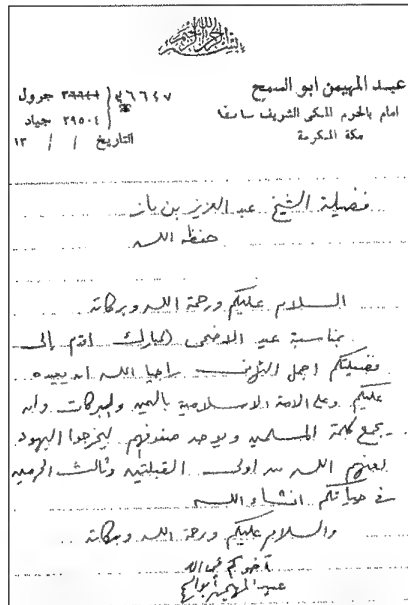 بسم الله الرحمن الرحيم
عبد المهيمن ابو السمح
امام بالحرم المكي الشريف سابقا
مكة المكرمة
٢٦٦٤٧ جرول
٢٩٥٠٤ جياد
التاريخ / / ١٣
فضيلة الشيخ عبد العزيز بن باز
حفظه الله
السلام عليكم ورحمة الله وبركاته
بمناسبة عيد الاضحى المبارك اقدم إلى
فضيلتكم اجمل التهاني راجيا الله ان يعيده
عليكم وعلى الامة الاسلامية باليمن والبركات وان
يجمع كلمة المسلمين ويوحد صفوفهم ليخرجوا اليهود
لعنهم الله من اولى القبلتين وثالث الحرمين
في حياتكم انشاء الله
والسلام عليكم ورحمة الله وبركاته
أخوكم في الله
عبد المهيمن أبو السمح